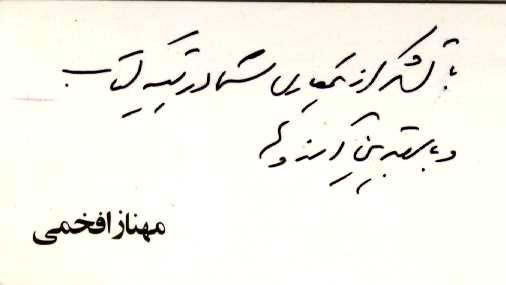 با تشکر از همکاری شما در تهیه کتاب
و با بهترین آرزوها
مهناز افخمی